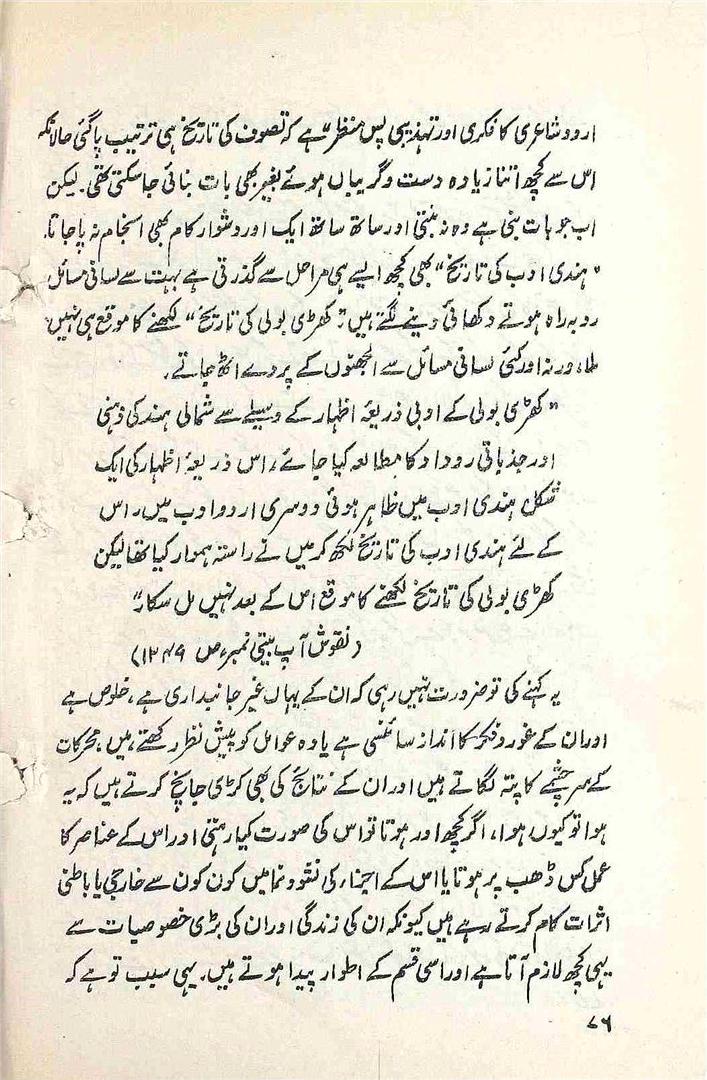 اردو شاعری کا فکری اور تہذیبی پس منظر" ہے کہ تصوف کی تاریخ ہی ترتیب پا گئی حالانکہ
اس سے کچھ اتنا زیادہ دست وگریباں ہوئے بغیر بھی بات بنائی جا سکتی تھی۔ لیکن
اب جو بات بنی ہے وہ نہ بنتی اور ساتھ ساتھ ایک اور دشوار کام بھی انجام نہ پا جاتا۔
"ہندی ادب کی تاریخ" بھی کچھ ایسے ہی مراحل سے گذرتی ہے بہت سے لسانی مسائل
روبہ راہ ہوتے دکھائی دینے لگتے ہیں "کھڑی بولی کی تاریخ" لکھنے کا موقع ہی نہیں
ملا ورنہ اور کئی لسانی مسائل سے الجھنوں کے پردے اٹھ جاتے۔
"کھڑی بولی کے ادبی ذریعۂ اظہار کے وسیلے سے شمالی ہند کی ذہنی
اور جذباتی روداد کا مطالعہ کیا جائے، اس ذریعۂ اظہار کی ایک
شکل ہندی ادب میں ظاہر ہوئی دوسری اردو ادب میں، اس
کے لئے ہندی ادب کی تاریخ لکھ کر میں نے راستہ ہموار کیا تھا لیکن
کھڑی بولی کی تاریخ لکھنے کا موقع اس کے بعد نہیں مل سکا۔"
(نقوش آپ بیتی نمبر، ص ۱۲۴۹)
یہ کہنے کی تو ضرورت نہیں رہی کہ ان کے یہاں غیر جانبداری ہے، خلوص ہے
اور ان کے غور و فکر کا انداز سائنسی ہے یا وہ عوامل کو پیش نظر رکھتے ہیں، محرکات
کے سرچشمے کا پتہ لگاتے ہیں اور ان کے نتائج کی بھی کڑی جانچ کرتے ہیں کہ یہ
ہوا تو کیوں ہوا، اگر کچھ اور ہوتا تو اس کی صورت کیا رہتی اور اس کے عناصر کا
عمل کس ڈھب پر ہوتا یا اس کے اجزاء کی نشوونما میں کون کون سے خارجی یا باطنی
اثرات کام کرتے رہے ہیں کیونکہ ان کی زندگی اور ان کی بڑی خصوصیات سے
یہی کچھ لازم آتا ہے اور اسی قسم کے اطوار پیدا ہوتے ہیں۔ یہی سبب تو ہے کہ
۷۶